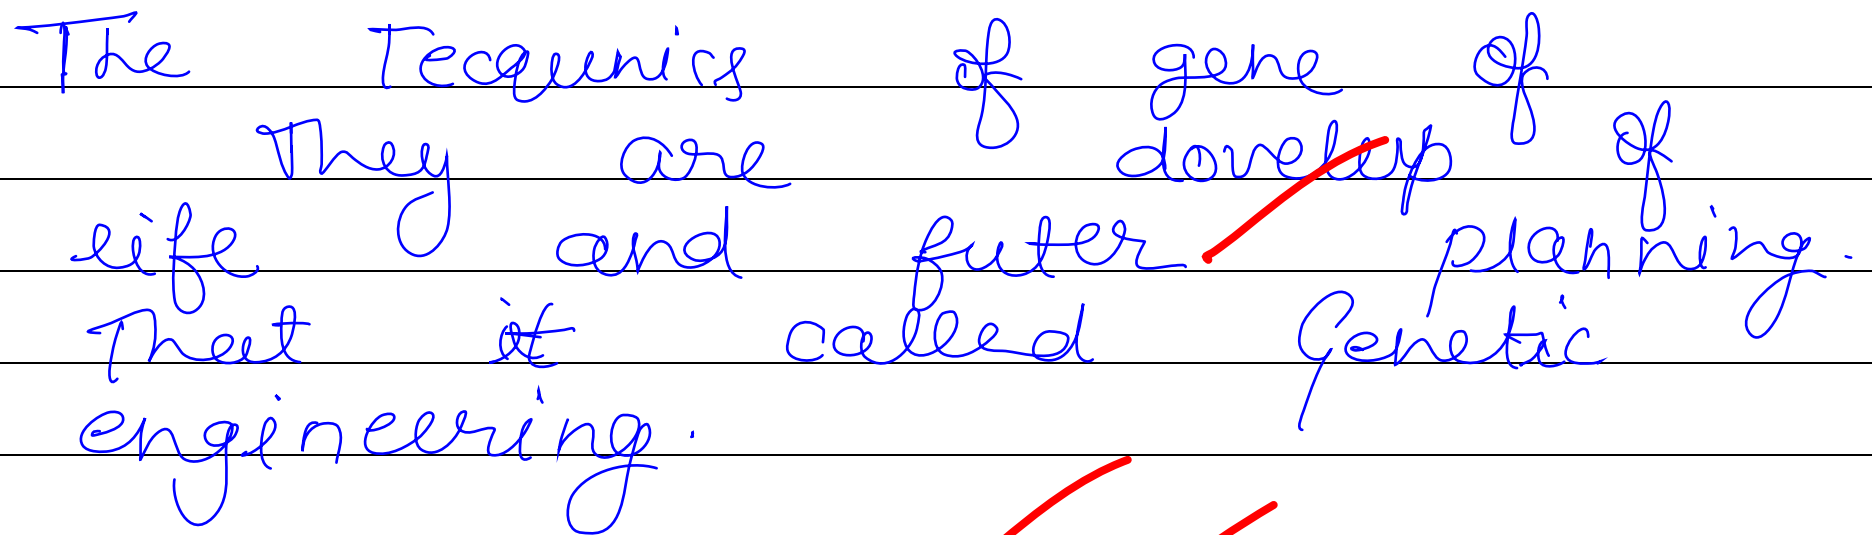 The Tecqunics of gene of
They are develop of
life and futer planning.
That it called Genetic
engineering.